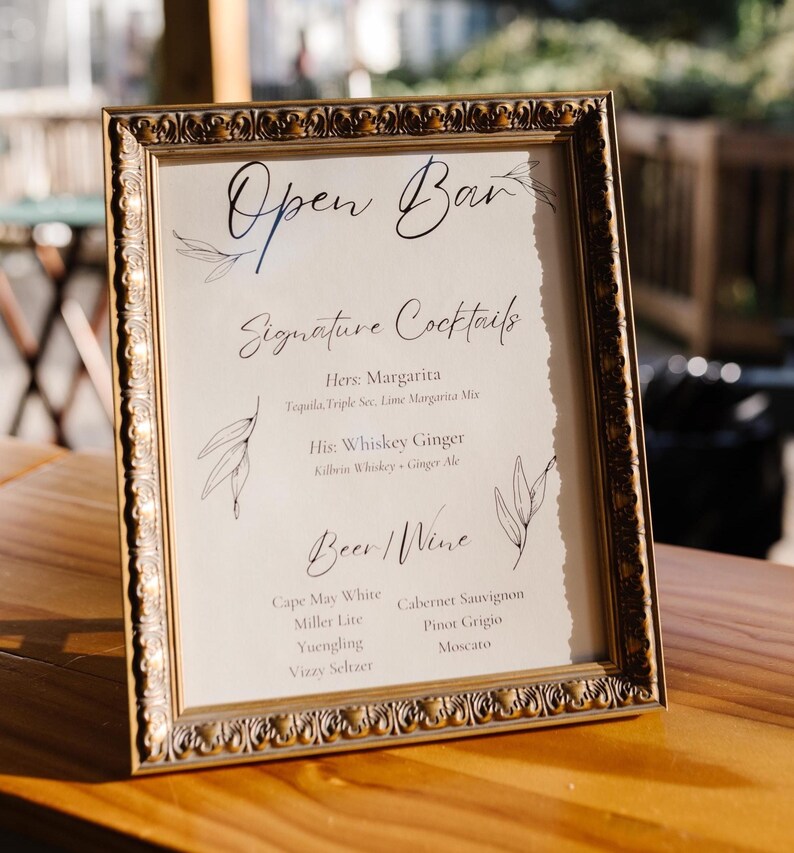 Open Bar
Signature Cocktails
Hers: Margarita
Tequila,Triple Sec, Lime Margarita Mix
His: Whiskey Ginger
Kilbrin Whiskey + Ginger Ale
Beer/Wine
Cape May White
Miller Lite
Yuengling
Vizzy Seltzer
Cabernet Sauvignon
Pinot Grigio
Moscato